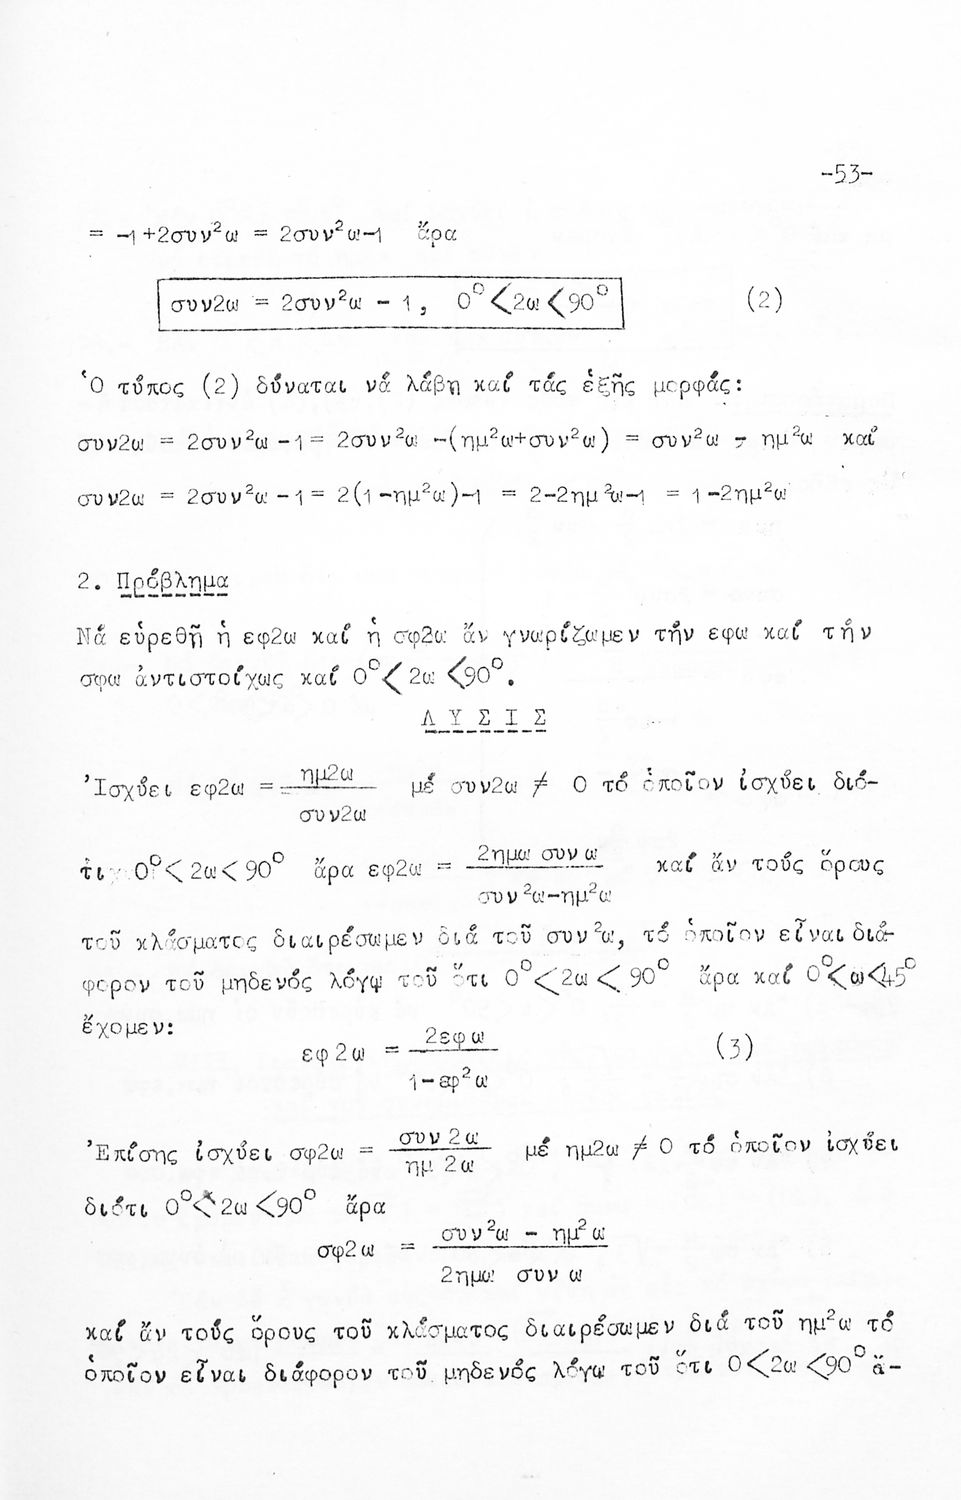 -53-
= -1+2συν²ω = 2συν²ω-1 ἄρα
συν2ω = 2συν²ω - 1, 0° < 2ω < 90° (2)
Ὁ τύπος (2) δύναται νά λάβῃ καί τάς ἑξῆς μορφάς:
συν2ω = 2συν²ω -1 = 2συν²ω -(ημ²ω+συν²ω) = συν²ω - ημ²ω καί
συν2ω = 2συν²ω -1 = 2(1-ημ²ω)-1 = 2-2ημ²ω-1 = 1-2ημ²ω
2. Πρόβλημα
Νά εὑρεθῇ ἡ εφ2ω καί ἡ σφ2ω ἄν γνωρίζωμεν τήν εφω καί τήν
σφω ἀντιστοίχως καί 0° < 2ω < 90°.
ΛΥΣΙΣ
Ἰσχύει εφ2ω = ημ2ω/συν2ω μέ συν2ω ≠ 0 τό ὁποῖον ἰσχύει διό-
τι 0° < 2ω < 90° ἄρα εφ2ω = 2ημω συνω/συν²ω-ημ²ω καί ἄν τούς ὅρους
τοῦ κλάσματος διαιρέσωμεν διά τοῦ συν²ω, τό ὁποῖον εἶναι διά-
φορον τοῦ μηδενός λόγῳ τοῦ ὅτι 0° < 2ω < 90° ἄρα καί 0° < ω < 45°
ἔχομεν:
εφ2ω = 2εφω/1-εφ²ω (3)
Ἐπίσης ἰσχύει σφ2ω = συν2ω/ημ2ω μέ ημ2ω ≠ 0 τό ὁποῖον ἰσχύει
διότι 0° < 2ω < 90° ἄρα
σφ2ω = συν²ω - ημ²ω/2ημω συνω
καί ἄν τούς ὅρους τοῦ κλάσματος διαιρέσωμεν διά τοῦ ημ²ω τό
ὁποῖον εἶναι διάφορον τοῦ μηδενός λόγῳ τοῦ ὅτι 0 < 2ω < 90° ἄ-